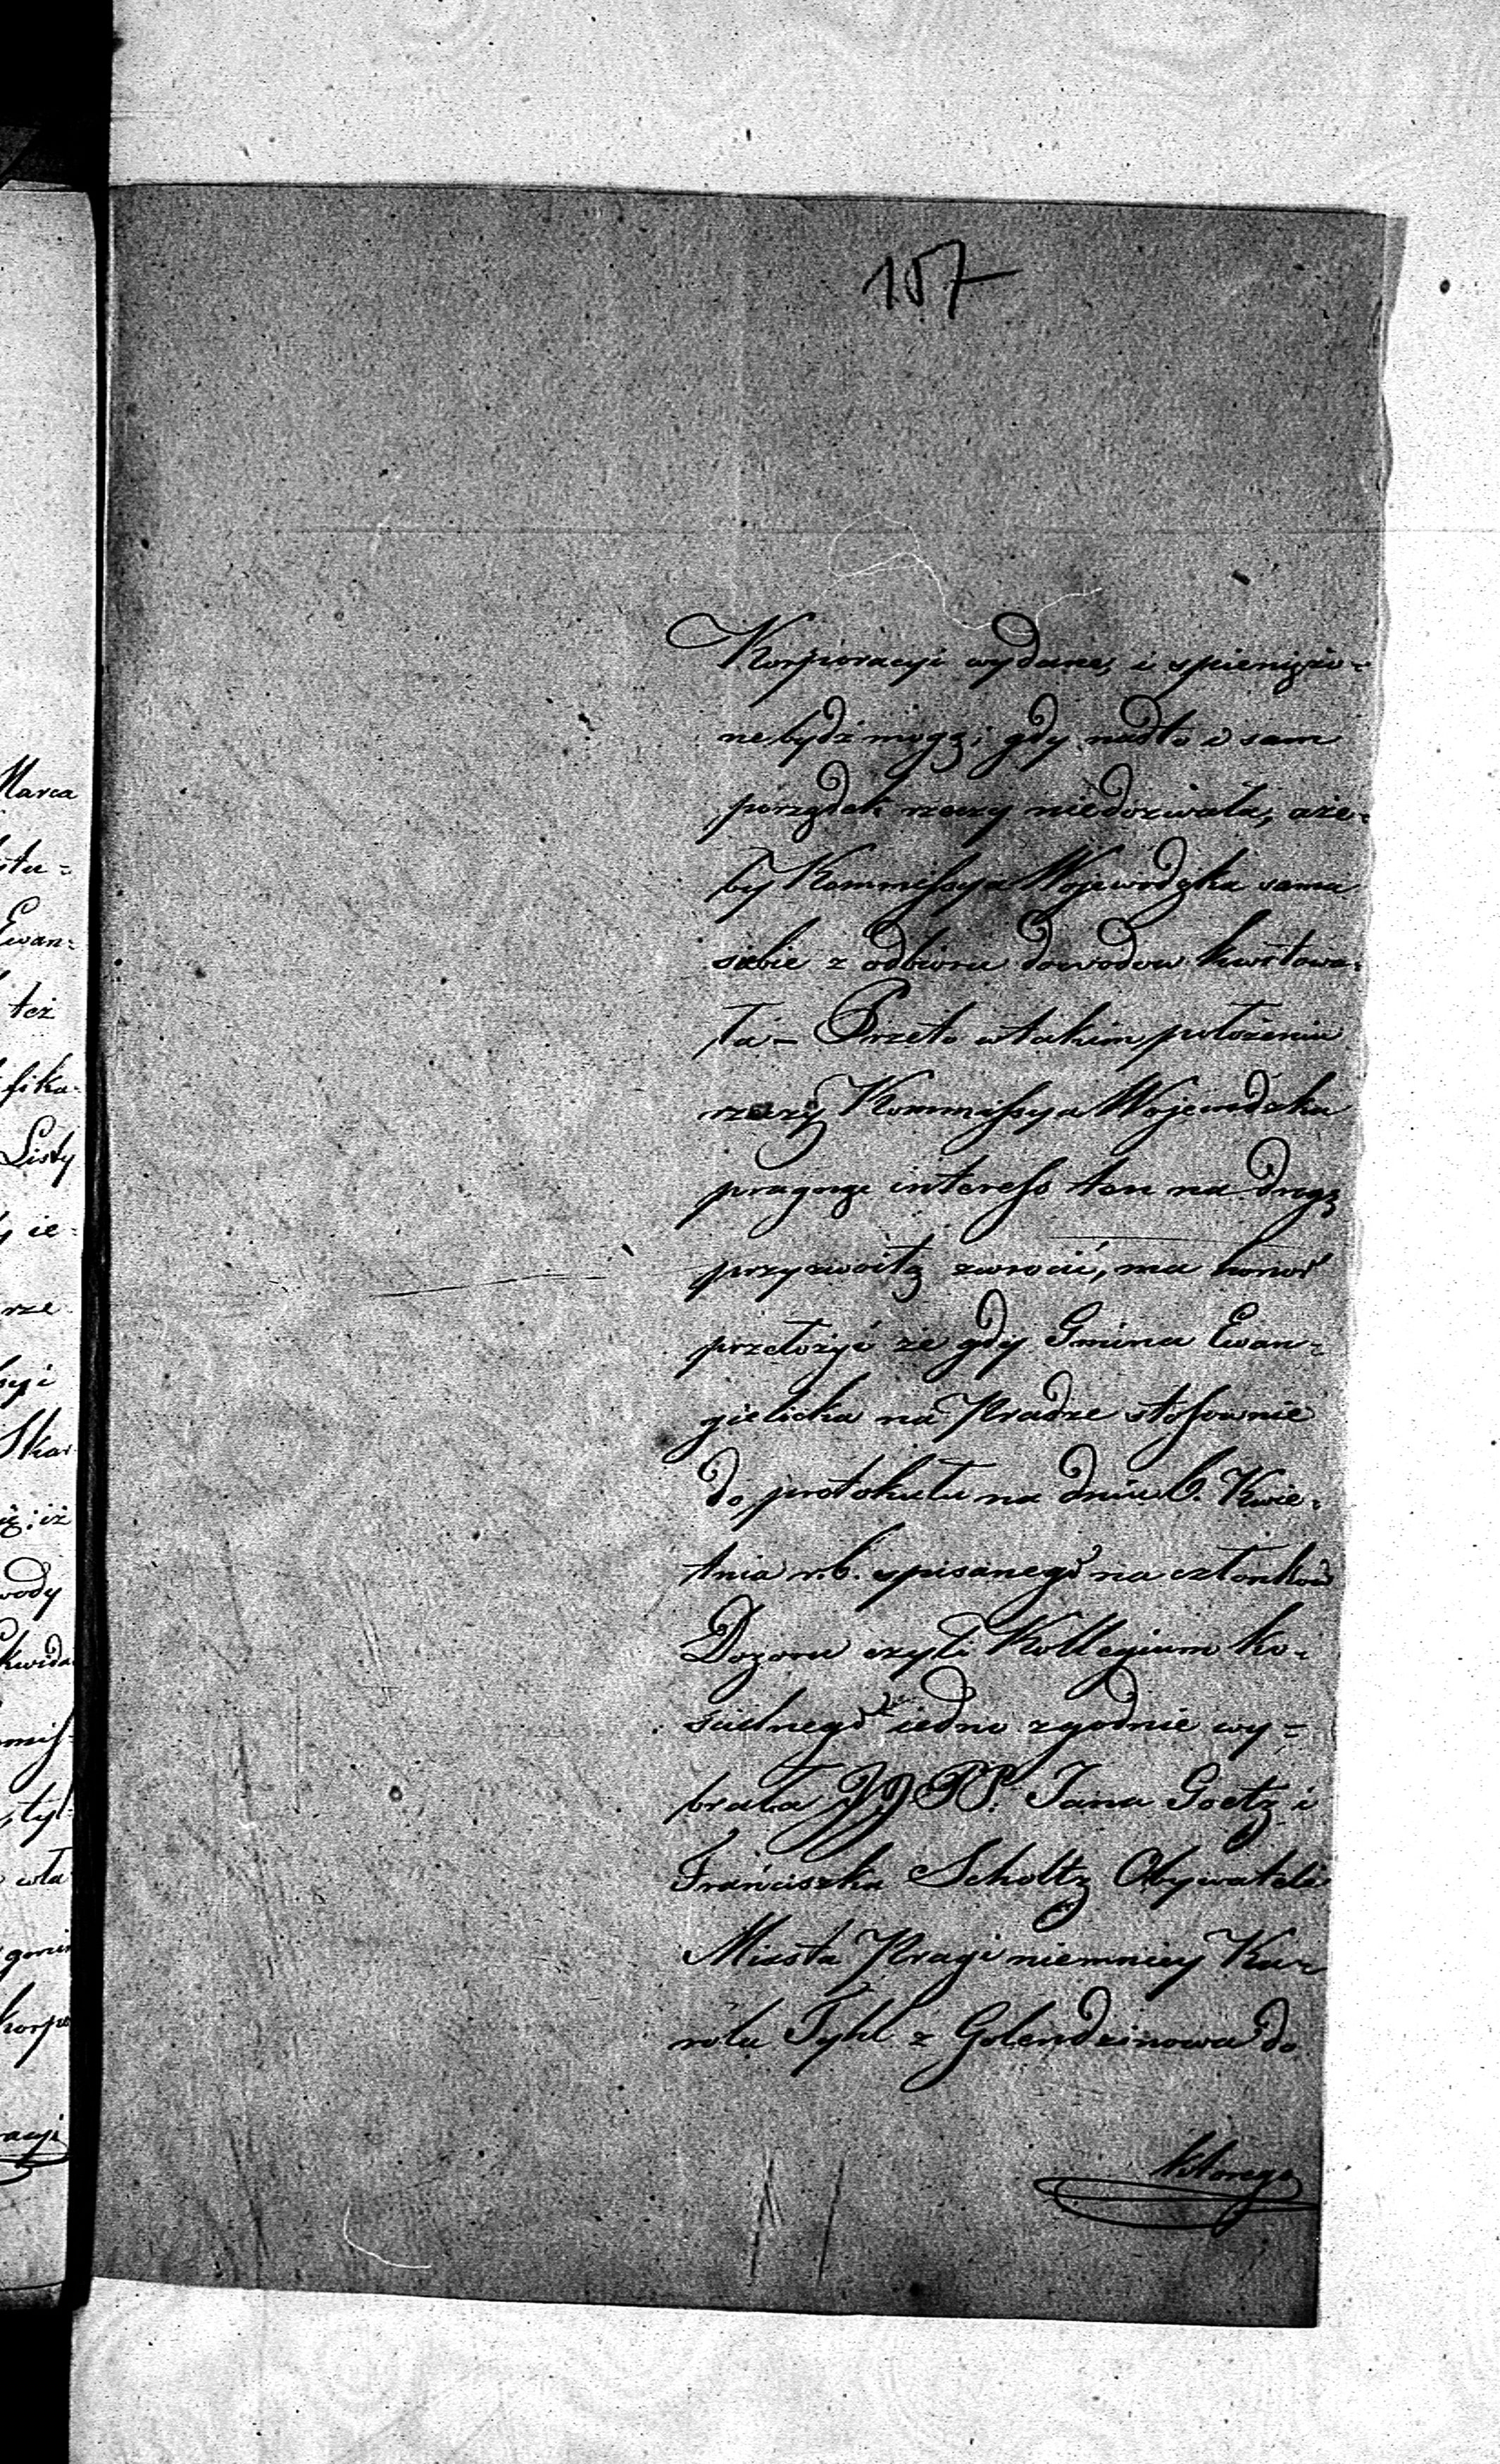 157
Korporacyi wydane, i spieniężo=
ne bydź mogą; gdy nadto i sam
porządek rzeczy niedozwala, aże=
by Kommissya Wojewodzka sama
siebie z odbioru dowodow kwitowa=
ła – Przeto w takim położeniu
rzeczy Kommissya Wojewodzka
pragnąc interess ten na drogę
przyzwoitą zwrocić, ma honor
przełożyć że gdy Gmina Ewan=
gielicka na Pradze stosownie
do protokułu na dniu 6. Kwie=
tnia r.b. spisanego na członków
Dozoru czyli Kollegium ko=
scielnego iedno zgodnie wy=
brała JJPP. Jana Goetz i
Franciszka Scholtz Obywateli
Miasta Pragi niemniey Ka=
rola Tykl z Golendzinowa do
ktorego
Marca
stu=
Ewan=
też
fika=
Listy
ie=
rze
Skar=
iż
wody
kwida
tyl=
wła
gmin
korpo
racyi